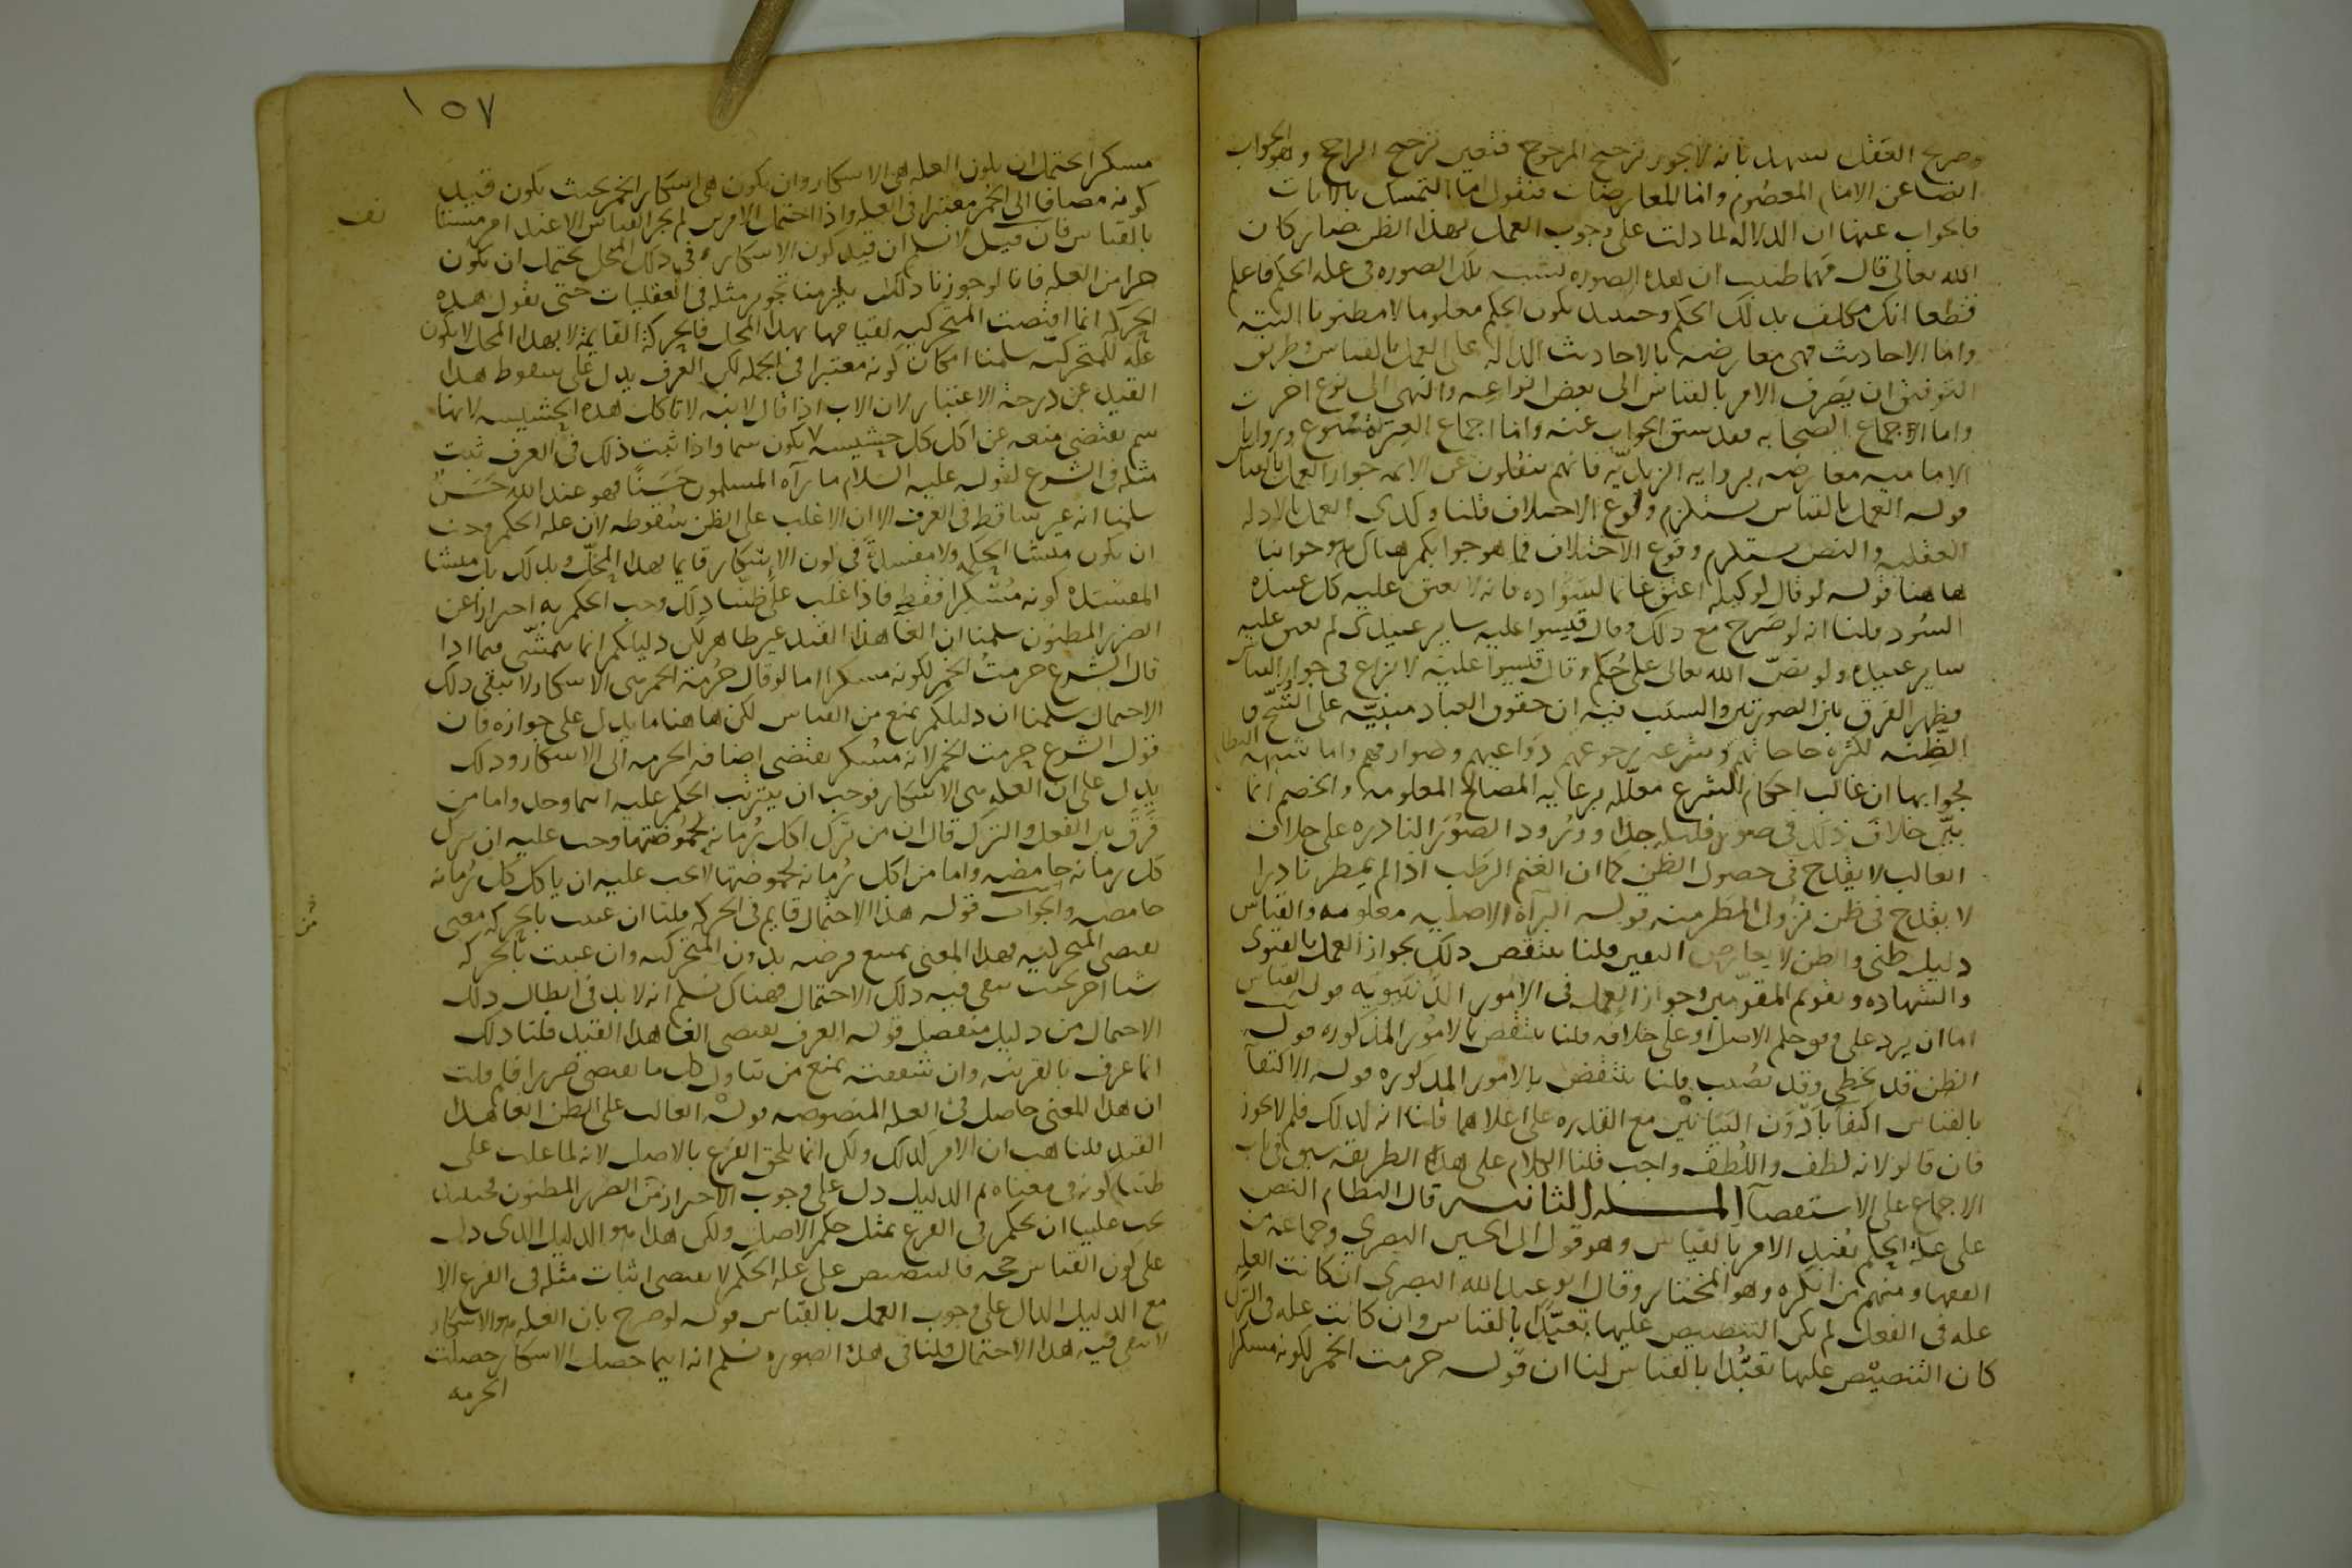 وصريح العقل يشهد بانه لا يجوز ترجيح المرجوح فتعين ترجيح الراجح وهو الجواب
ايضا عن الامام المعصوم واما المعارضات فنقول اما التمسك بالايات
فالجواب عنها ان الدلالة لما دلت على وجوب العمل بهذا الظن صار كان
الله تعالى قال مهما ظننت ان هذه الصورة تشبه تلك الصورة في علة الحكم فاعلم
قطعا انك مكلف بذلك الحكم وحينئذ يكون الحكم معلوما لا مظنونا البتة
واما الاحاديث فهي معارضة بالاحاديث الدالة على العمل بالقياس وطريق
التوفيق ان يصرف الامر بالقياس الى بعض انواعه والنهي الى نوع اخر
واما اجماع الصحابه فقد سبق الجواب عنه واما اجماع العترة فممنوع وروايات
الامامية معارضة برواية الزيدية فانهم ينقلون عن الائمة جواز العمل بالقياس
قوله العمل بالقياس يستلزم وقوع الاختلاف قلنا وكذى العمل بالادلة
العقلية والنص يستلزم وقوع الاختلاف فما هو جوابكم هناك فهو جوابنا
هاهنا قوله لو قال لوكيله اعتق غانما لسواده فانه لا يعتق عليه كل عبيده
السود قلنا انه لو صرح مع ذلك وقال قيسوا عليه ساير عبيدى لم يعتق عليه
ساير عبيده ولو نص الله تعالى على حكم وقال قيسوا عليه لا نزاع في جواز القياس
فظهر الفرق بين الصورتين والسبب فيه ان حقوق العباد مبنية على الشح و
الضنة لكثرة حاجاتهم وسرعة رجوعهم دواعيهم وصوارفهم واما شبهة النظام
فجوابها ان غالب احكام الشرع معللة برعاية المصالح المعلومة والخصم انما
بين خلاف ذلك في صور قليلة جدا وورود الصور النادرة على خلاف
الغالب لا يقدح في حصول الظن كما ان الغيم الرطب اذا لم يمطر نادرا
لا يقدح في ظن نزول المطر منه قوله البرآة الاصلية معلومة والقياس
دليل ظني والظن لا يعارض اليقين قلنا ينتقض ذلك بجواز العمل بالفتوى
والشهادة وتقويم المقومين وجواز العمل في الامور الدنيوية قوله القياس
اما ان يرد على وفق حكم الاصل او على خلافه قلنا ينتقض بالامور المذكورة قوله
الظن قد يخطى وقد يصيب قلنا ينتقض بالامور المذكورة قوله الاكتفآ
بالقياس اكتفآ بادون البيانين مع القدرة على اعلاهما قلنا انه كذلك فلم لا يجوز
فان قالوا لانه لطف واللطف واجب قلنا الكلام على هذه الطريقة سبق في باب
الاجماع على الاستقصآ المسلة الثانيه قال النظام النص
على علة الحكم يفيد الامر بالقياس وهو قول ابى الحسين البصري وجماعة من
الفقها ومنهم من انكره وهو المختار وقال ابو عبد الله البصرى ان كانت العلة
علة في الفعل لم يكن التنصيص عليها تعبدا بالقياس وان كانت علة في الترك
كان التنصيص عليها تعبدا بالقياس لنا ان قوله حرمت الخمر لكونه مسكرا
١٥٧
مسكرا يحتمل ان يكون العلة هي الاسكار وان يكون هي اسكار الخمر بحيث يكون قيد
كونه مضافا الى الخمر معتبرا في العلة واذا احتمل الامرين لم يجز القياس الا عند امر مستانف
بالقياس فان قيل لا نسلم ان قيد كون الاسكار في ذلك المحل يحتمل ان يكون
جزا من العلة فانا لو جوزنا ذلك يلزمنا تجويز مثله في العقليات حتى نقول هذه
الحركة انما اقتضت المتحركية لقيامها بهذا المحل فالحركة القايمة لا بهذا المحل لا يكون
علة للمتحركية سلمنا امكان كونه معتبرا في الجملة لكن العرف يدل على سقوط هذا
القيد عن درجة الاعتبار لان الاب اذا قال لابنه لا تاكل هذه الحشيشة لانها
سم يقتضي منعه عن اكل كل حشيشة يكون سما واذا ثبت ذلك في العرف ثبت
مثله في الشرع لقوله عليه السلام ما رآه المسلمون حسنا فهو عند الله حسن
سلمنا انه غير ساقط في العرف الا ان الاغلب على الظن سقوطه لان علة الحكم وجب
ان يكون منشا الحكمة ولا مفسدة في كون الاسكار قايما بهذا المحل وبذلك بل منشا
المفسدة كونه مسكرا فقط فاذا غلب على ظننا ذلك وجب الحكم به احترازا عن
الضرر المظنون سلمنا ان الغآ هذا القيد غير ظاهر لكن دليلكم انما يتمشى فيما اذا
قال الشرع حرمت الخمر لكونه مسكرا اما لو قال حرمة الخمر هي الاسكار لا يبقى ذلك
الاحتمال سلمنا ان دليلكم يمنع من القياس لكن هاهنا ما يدل على جوازه فان
قول الشرع حرمت الخمر لانه مسكر يقتضى اضافة الحرمة الى الاسكار وذلك
يدل على ان العلة هي الاسكار فوجب ان يترتب الحكم عليه اينما وجد واما من
فرق بين الفعل والترك قال ان من ترك اكل رمانة لحموضتها وجب عليه ان يترك
كل رمانة حامضة واما من اكل رمانة لحموضتها لا يجب عليه ان ياكل كل رمانة
حامضة والجواب قوله هذا الاحتمال قايم في الحركة قلنا ان عنيت بالحركة معنى
يقتضي المتحركية فهذا المعنى يمتنع فرضه بدون المتحركية وان عنيت بالحركة
شيا اخر بحيث يبقى فيه ذلك الاحتمال فهناك نسلم انه لا بد في ابطال ذلك
الاحتمال من دليل منفصل قوله العرف يقتضى الغا هذا القيد قلنا ذلك
انما عرف بالقرينة وان شفقته تمنع من تناول كل ما يقتضي ضررا فلم قلت
ان هذا المعنى حاصل في العلة المنصوصة قوله الغالب على الظن الغا هذا
القيد قلنا هب ان الامر كذلك ولكن انما يلحق الفرع بالاصل لانه لما غلب على
ظننا كونه في معناه ثم الدليل دل على وجوب الاحتراز من الضرر المظنون فحينئذ
يجب علينا ان نحكم في الفرع بمثل حكم الاصل ولكن هذا هو الدليل الذي دل
على كون القياس حجة فالتنصيص على علة الحكم لا يقتضى اثبات مثله في الفرع الا
مع الدليل الدال على وجوب العمل بالقياس قوله لو صرح بان العلة هو الاسكار
لا يبقى فيه هذا الاحتمال قلنا في هذه الصورة نسلم انه اينما حصل الاسكار حصلت
الحرمه